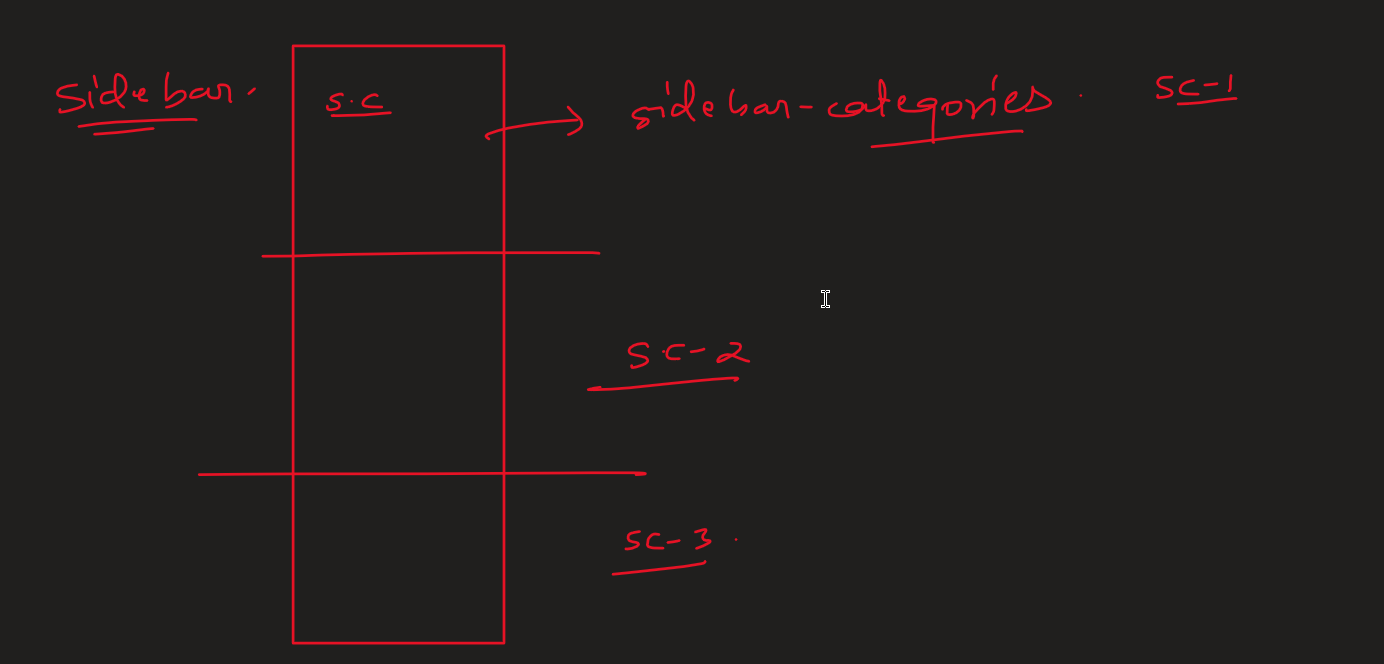 sidebar.
s.c
sidebar-categories.
SC-1
SC-2
SC-3.